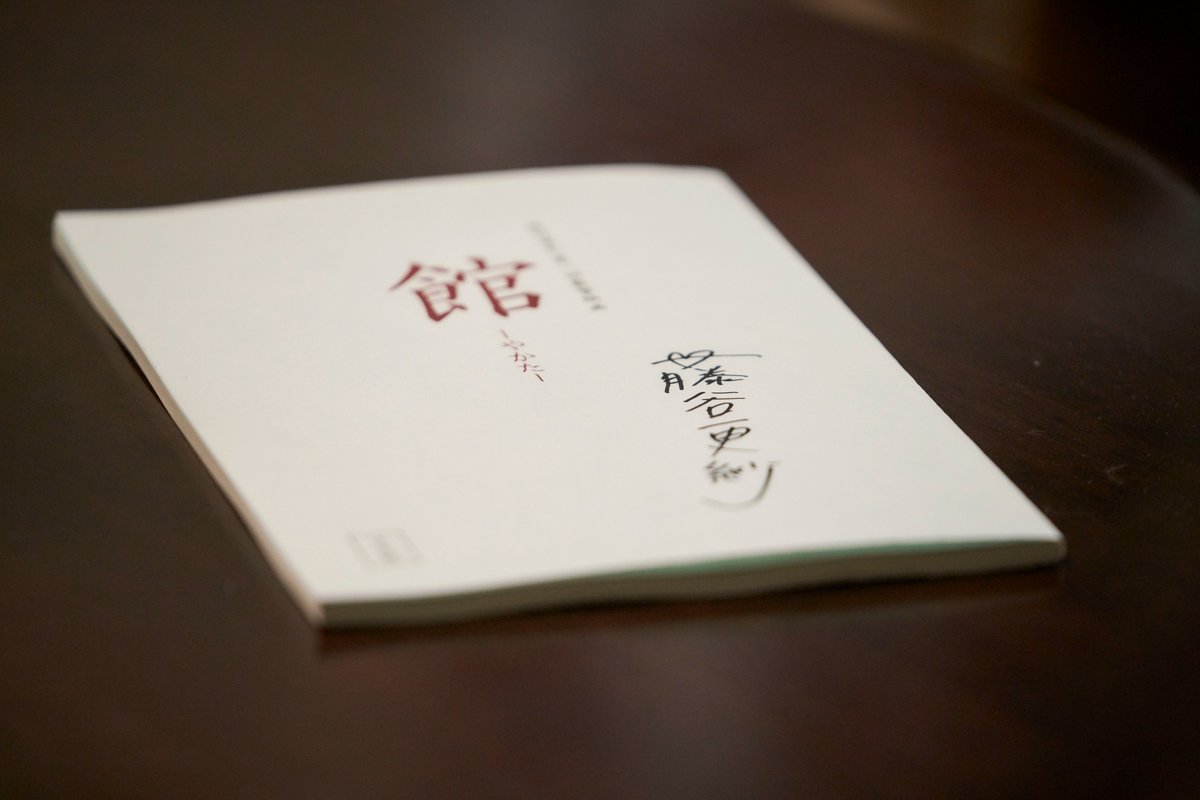 館
－やかた－
藤谷更紗